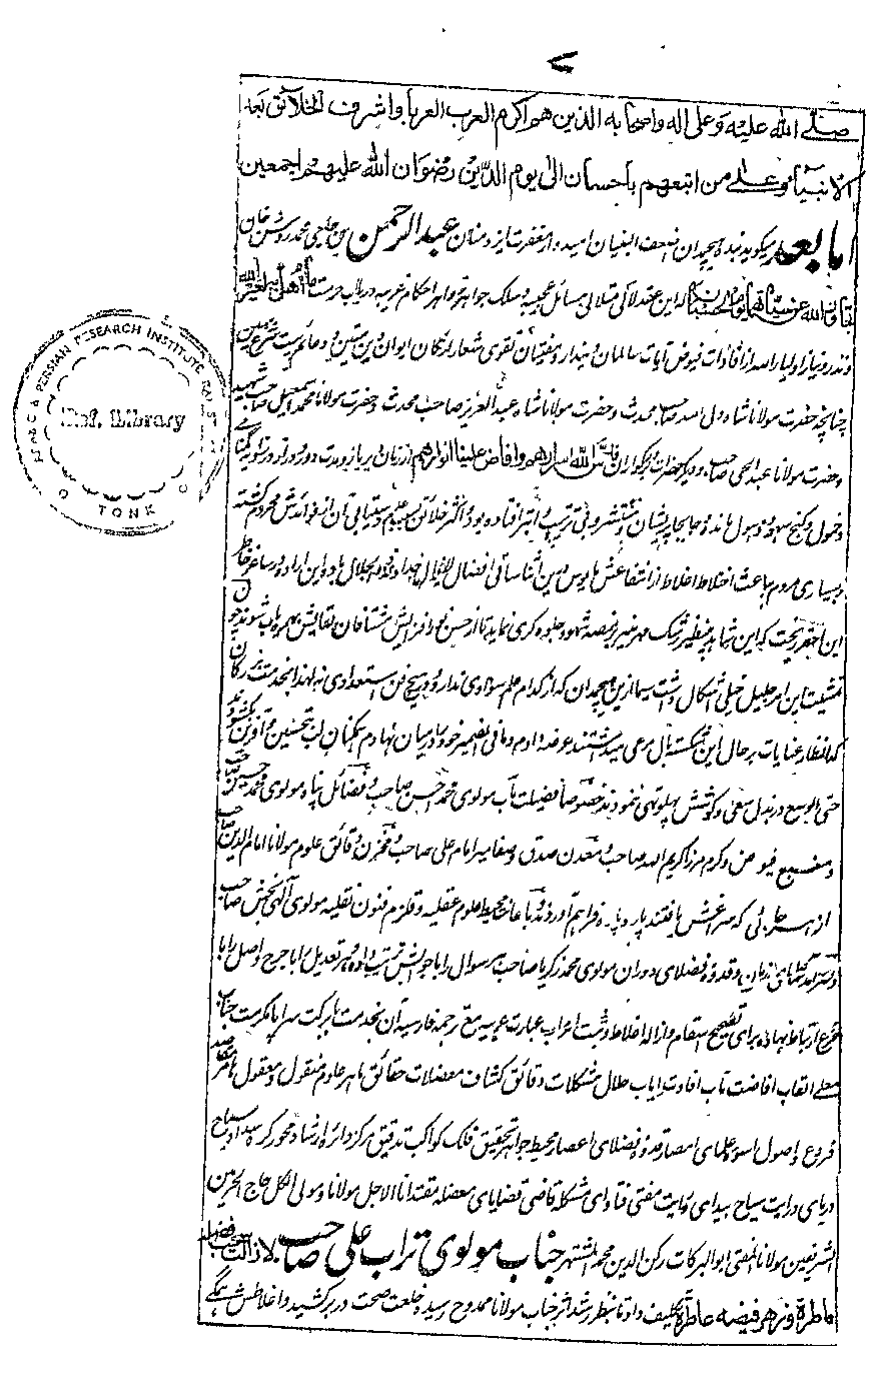 ۷
صلے الله علیه وعلی اله واصحابه الذین هم اکرم العرب العرباء واشرف الخلائق بعد
الانبیاء وعلی من اتبعهم باحسان الی یوم الدین رضوان الله علیهم اجمعین
اما بعد میگوید بندهٔ هیچمدان اضعف البنیان امیدوار مغفرت ایزد منان عبدالرحمن بن حاجی محمد روشن خان
تجاوز الله عن سیئاتهما که این عقد لآلی متلالی مسائل عجیبه و سلک جواهر زواهر احکام غریبه در باب حرمت ما اهل به لغیر الله
و نذر و نیاز اولیاء الله از افادات فیوض آیات سالمان دیندار و متقیان تقوی شعار ارکان ایوان دین متین و دعائم بیت شرع مبین
چنانچه حضرت مولانا شاه ولی الله صاحب محدث و حضرت مولانا شاه عبد العزیز صاحب محدث و حضرت مولانا محمد اسمعیل صاحب شهید
و حضرت مولانا عبد الحی صاحب و دیگر حضرات بزرگواران قدس الله اسرارهم وافاض علینا انوارهم از زمان دیرباز و مدت دور و دراز در زاویه گمنامی
و خمول و کنج سهو و ذهول مانده و جابجا پریشان و منتشر و بی ترتیب و ابتر افتاده بود و اکثر خلائق بسبب عدم دستیابی آن از فوائدش محروم گشته
و بسیاری مردم بباعث اختلاط اغلاط از انتفاعش مایوس درین اثنا ساقی افضال لایزال خداوند ذو الجلال بادهٔ این اراده در ساغر خاطر
این احقر ریخت که این شاهد بینظیر رشک مهر منیر بر منصه شهود جلوه گری نماید تا از حسن نور افزایش مشتاقان لقایش بهره یاب شوند چون
تمشیت این امر جلیل خیلی اشکال داشت سیما ازین هیچمدان که از کدام علم سوادی ندارد و در هیچ فن استعدادی نه لهذا بخدمت بزرگان
که انظار عنایات بر حال این شکسته بال مرعی میداشتند عرضه دادم و ما فی الضمیر خود را در میان نهادم همگنان لب بتحسین و آفرین کشودند
حتی الوسع در بذل سعی و کوشش پهلوتهی ننمودند خصوصا فضیلت مآب مولوی محمد احسن صاحب و فضائل پناه مولوی محمد حسین صاحب
و منبع فیوض و کرم مرزا کریم الله صاحب و معدن صدق و صفا میر امام علی صاحب و مخزن دقائق علوم مولانا امام الدین صاحب
از هر جائی که سراغش یافتند پاره پاره فراهم آوردند و باعانت محیط علوم عقلیه و قلزم فنون نقلیه مولوی الهی بخش صاحب
و سرآمد علمای زمان و قدوهٔ فضلای دوران مولوی محمد زکریا صاحب هر سوال را با جوابش ترتیب داده و هر تعدیل را با جرح و اصل را با
فرع ارتباط نهاده برای تصحیح اسقام و ازاله اغلاط و ثبت اعراب عبارت عربیه مع ترجمه فارسیه آن بخدمت بابرکت سراپا مکرمت جناب
معلی القاب افاضت مآب افادت ایاب حلال مشکلات دقائق کشاف معضلات حقائق ماهر علوم منقول و معقول
فروع و اصول اسوهٔ علمای امصار قدوهٔ فضلای اعصار محیط جواهر تحقیق فلک کواکب تدقیق مرکز دائره ارشاد محور کره سداد سباح
دریای درایت سیاح بیدای روایت مفتی فتاوای مشکله قاضی قضایای معضله مقتدانا الاجل مولانا و مولی الکل حاج الحرمین
الشریفین مولانا المفتی ابو البرکات رکن الدین محمد المشتهر جناب مولوی تراب علی صاحب لا زالت سحب فضله
ماطرة و زهر فیضه عاطرة تکلیف داد تا بنظر رشد اثر جناب مولانا ممدوح رسیده خلعت صحت در بر کشید و اغلاطش همگی
ARABIC & PERSIAN RESEARCH INSTITUTE RAJASTHAN
Ref. Library
TONK